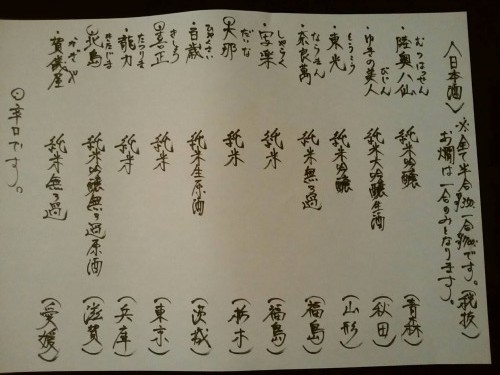 〈日本酒〉 ※全て半合 一合 です。(税抜)
お燗は一合のみとなります。
・陸奥八仙 むつはっせん 純米吟醸 (青森)
・ゆきの美人 びじん 純米大吟醸生酒 (秋田)
・東光 とうこう 純米吟醸 (山形)
・奈良萬 ならまん 純米無ろ過 (福島)
・写楽 しゃらく 純米 (福島)
⊙大那 だいな 純米 (栃木)
・百歳 ひゃくさい 純米生原酒 (茨城)
⊙喜正 きしょう 純米 (東京)
・龍力 たつりき 純米 (兵庫)
⊙北島 きたじま 純米吟醸無ろ過原酒 (滋賀)
・賀儀屋 かぎや 純米無ろ過 (愛媛)
⊙辛口です。